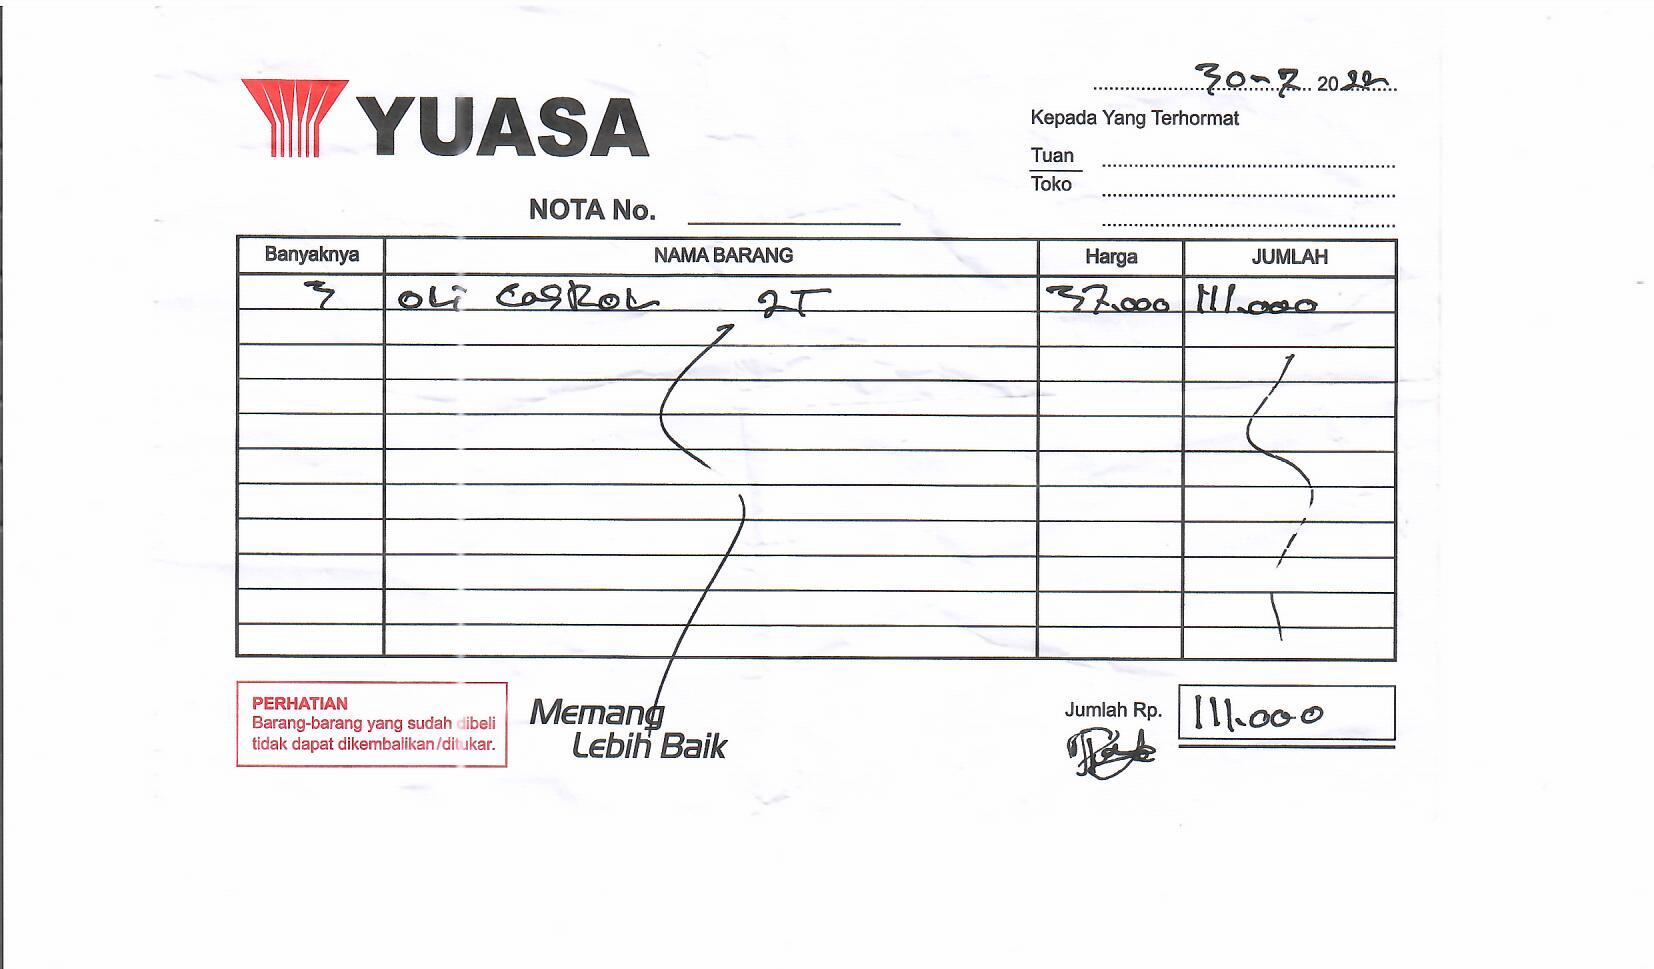 YUASA
30-7 2022
Kepada Yang Terhormat
Tuan
Toko
NOTA No.
Banyaknya NAMA BARANG Harga JUMLAH
3 OLI CASROL 2T 37.000 111.000
PERHATIAN
Barang-barang yang sudah dibeli
tidak dapat dikembalikan/ditukar.
Memang
Lebih Baik
Jumlah Rp. 111.000